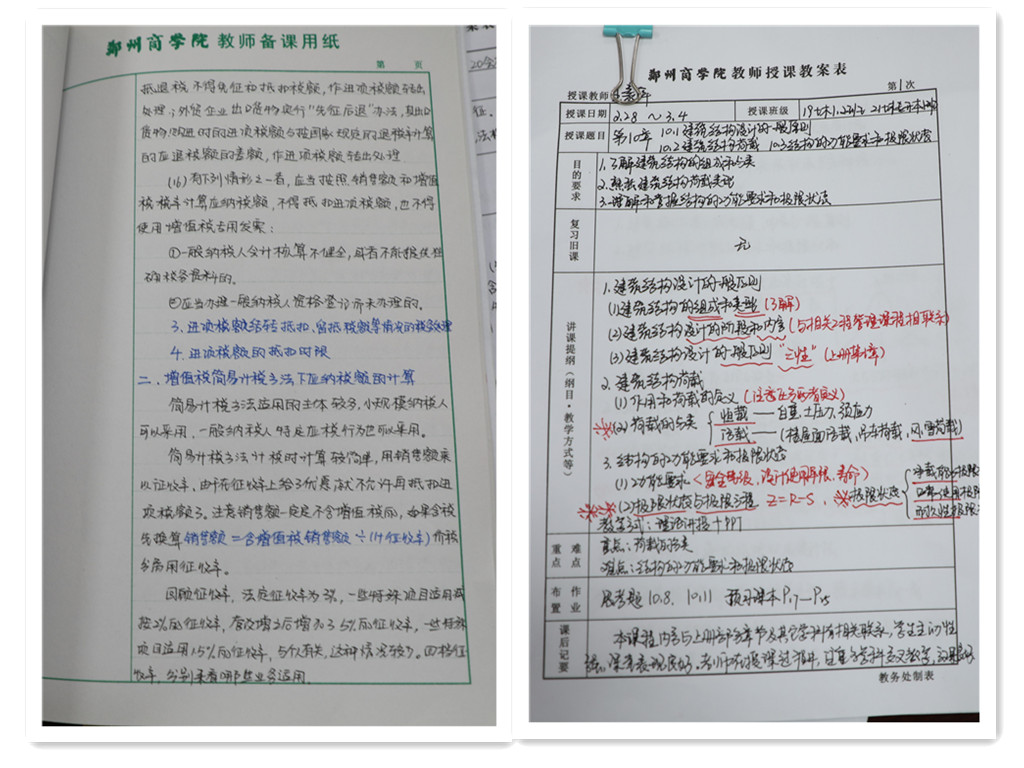 郑州商学院 教师备课用纸
第 页
抵退税不得免征和抵扣税额,作进项税额转出
处理;外贸企业出口货物实行“先征后退”办法,其出口
货物购进时的进项税额与按国家规定的退税率计算
的应退税额的差额,作进项税额转出处理
(16)有下列情形之一者,应当按照销售额和增值
税税率计算应纳税额,不得抵扣进项税额,也不得
使用增值税专用发票:
①一般纳税人会计核算不健全,或者不能提供准
确税务资料的。
②应当办理一般纳税人资格登记而未办理的。
3.进项税额结转抵扣、留抵税额等情况的税务处理
4.进项税额的抵扣时限
二、增值税简易计税方法下应纳税额的计算
简易计税方法适用的主体较多,小规模纳税人
可以采用,一般纳税人特定应税行为也可以采用。
简易计税方法计税时计算较简单,用销售额乘
以征收率。由于在征收率上给了优惠,故不允许再抵扣进
项税额了。注意销售额一定是不含增值税的,如果含税
先换算 销售额=含增值税销售额÷(1+征收率)价税
分离用征收率。
回顾征收率,法定征收率为3%,一些特殊项目适用减
按2%的征收率,营改增之后增加了5%的征收率,一些特殊
项目适用1.5%的征收率,与个人有关,这种情况较少。四档征
收率,分别来看哪些业务适用。
郑州商学院教师授课教案表
第1次
授课教师
授课日期 2.28 ~ 3.4 授课班级
授课题目 第10章 10.1 建筑结构设计的一般原则
10.2 建筑结构荷载 10.3 结构的功能要求和极限状态
目的要求
1.了解建筑结构的组成和分类
2.熟悉建筑结构荷载类型
3.理解和掌握结构的功能要求和极限状态
复习旧课
无
讲课提纲(纲目·教学方式等)
1.建筑结构设计的一般原则
(1)建筑结构的组成和类型(了解)
(2)建筑结构设计的阶段和内容(与相关工程管理课程相联系)
(3)建筑结构设计的一般原则“三性”(上册第1章)
2.建筑结构荷载
(1)作用和荷载的定义(注意区分两者定义)
(2)荷载的分类 恒载——自重、土压力、预应力
活载——(楼屋面活载、吊车荷载、风、雪荷载)
3.结构的功能要求和极限状态
(1)功能要求<安全等级、设计使用年限、寿命>
(2)极限状态与极限方程 Z=R-S、极限状态 承载能力极限
正常使用极限
耐久性极限
教学方式:理论讲授+PPT
重点 难点
重点:荷载的分类
难点:结构的功能要求和极限状态
布置 作业
思考题10.8、10.11 预习课本P17—P25
课后记要
本课程内容与上册部分章节及其它学科有相关联系,学生主动性
强,课堂表现良好。
教务处制表